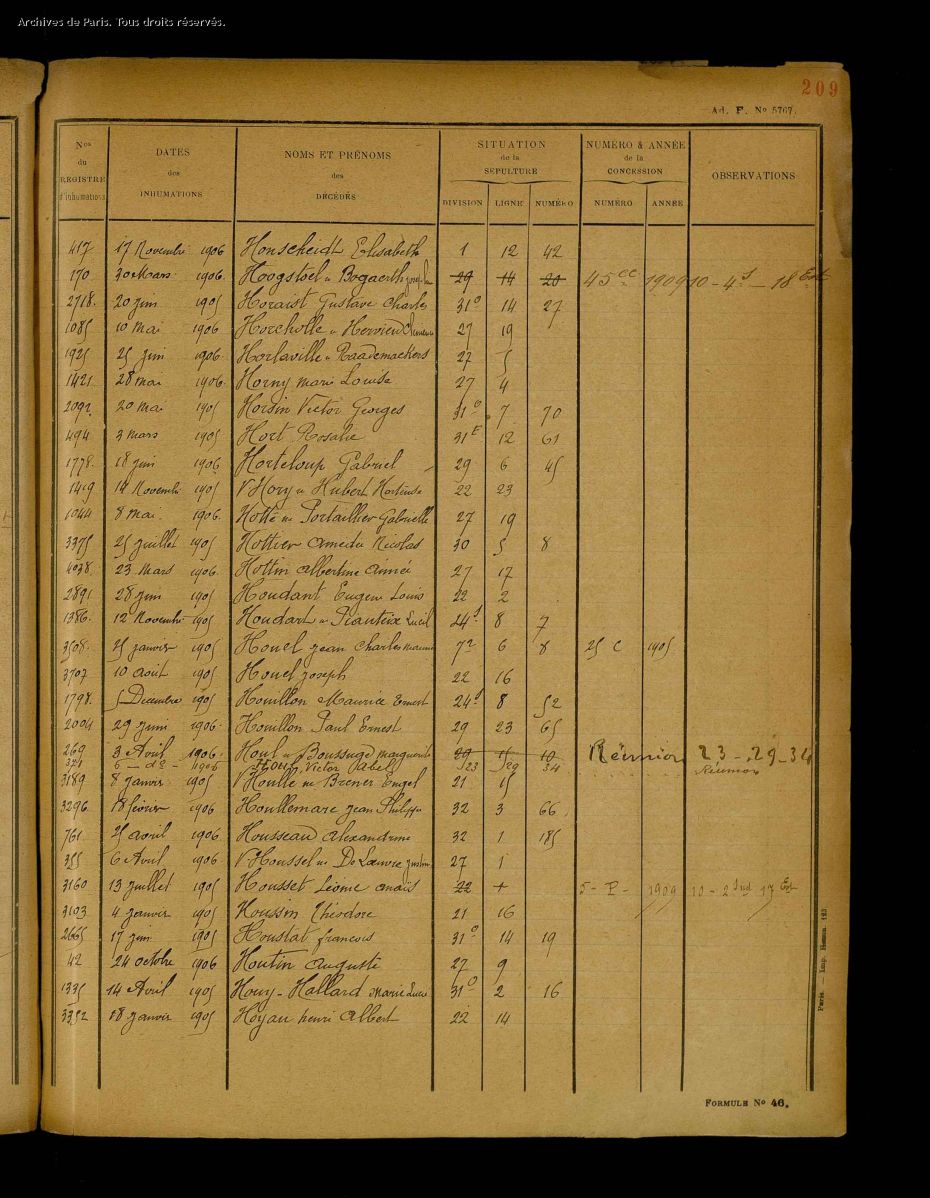 Archives de Paris. Tous droits réservés.
209
Ad. F. No 5767.
Nos du REGISTRE d'inhumations DATES des INHUMATIONS NOMS ET PRÉNOMS des DÉCÉDÉS SITUATION de la SÉPULTURE NUMÉRO & ANNÉE de la CONCESSION OBSERVATIONS
DIVISION LIGNE NUMÉRO NUMÉRO ANNÉE
417 17 Novembre 1906 Honscheidt Elisabeth 1 12 42
170 30 Mars 1906 Hoogstoel n Bogaerth 29 14 20 45 cc 1909 10 - 4 s - 18 Est
2718 20 juin 1905 Horaist Gustave Charles 31 o 14 27
1085 10 Mai 1906 Horcholle n Hervieu 27 19
1925 25 juin 1906 Horlaville n Raademackers 27 5
1421 28 mai 1906 Horny marie Louise 27 4
2092 20 mai 1905 Horsin Victor Georges 31 o 7 70
494 3 mars 1905 Hort Rosalie 31 E 12 61
1778 18 juin 1906 Horteloup Gabriel 29 6 45
1419 14 Novembre 1905 V Hory n Hubert Hortense 22 23
1044 8 mai 1906 Hotte née Portaillier Gabrielle 27 19
3375 25 juillet 1905 Hottier Amedée Nicolas 30 5 8
4038 23 Mars 1906 Hottin albertine année 27 17
2891 28 juin 1905 Houdant Eugene Louis 22 2
1386 12 Novembre 1905 Houdart n Pianteix Lucil 24 s 8 7
3508 25 janvier 1905 Houel jean Charles 7 6 8 25 C 1905
3707 10 aout 1905 Houel joseph 22 16
1798 5 Decembre 1905 Houillon Maurice Ernest 24 s 8 52
2004 29 juin 1906 Houillon Paul Ernest 29 23 65
269 3 Avril 1906 Houl n Boussuge marguerite 29 15 10 Réunion 23 - 29 - 34
321 6 - do - 1906 Houl Victor Abel 23 29 34 Réunion
3189 8 janvier 1905 V Houlle née Brener Engel 21 15
3296 18 février 1906 Houllemare jean Philippe 32 3 66
761 25 avril 1906 Housseau Alexandrine 32 1 185
355 6 Avril 1906 V Houssel née De Lauvre 27 1
3160 13 juillet 1905 Housset Léonie anaïs 22 + 5 - P - 1909 10 - 2 Sud 17 Est
3103 4 janvier 1905 Houssin Théodore 21 16
2665 17 juin 1905 Houstat francois 31 o 14 19
42 24 octobre 1906 Houtin Auguste 27 9
1335 14 Avril 1905 Houy - Hallard Marie Luce 31 o 2 16
3352 18 janvier 1905 Hoyau henri Albert 22 14
Paris. — Imp. Hemm. 123
FORMULE No 46.